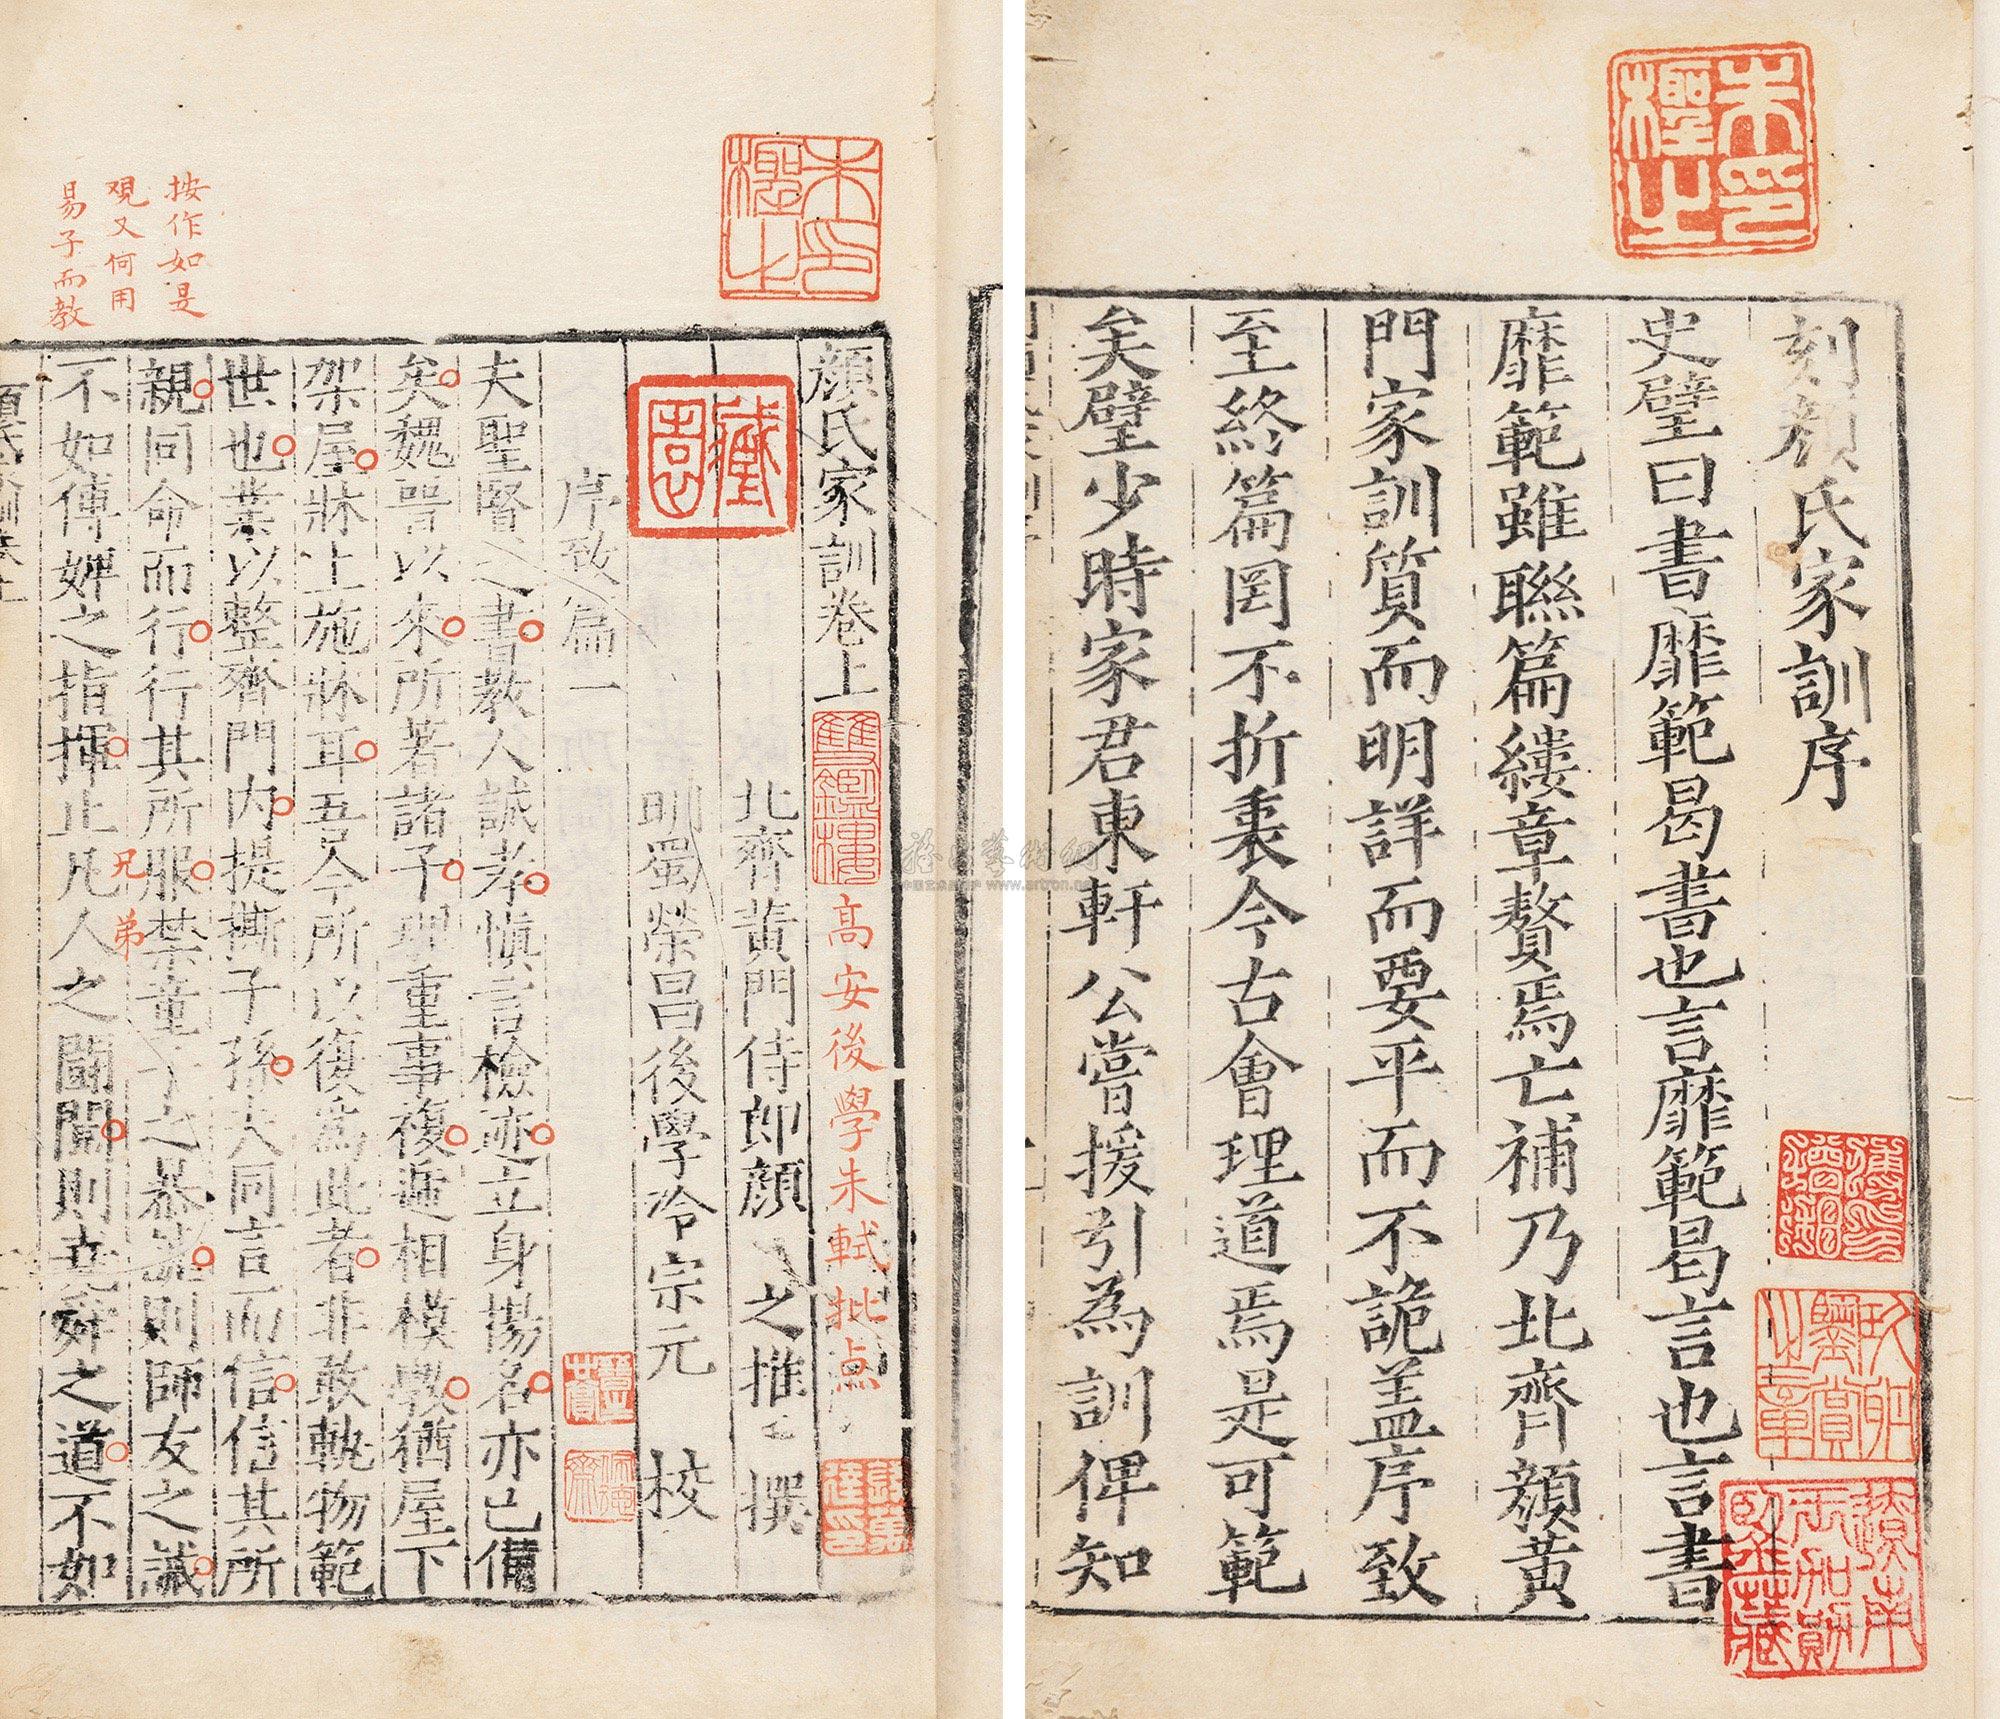 刻顏氏家訓序
史璧曰書靡範曷書也言靡範曷言也言書
靡範雖聯篇縷章贅焉亡補乃北齊顏黃
門家訓質而明詳而要平而不詭蓋序致
至終篇罔不折衷今古會理道焉是可範
矣璧少時家君東軒公嘗援引為訓俾知
顏氏家訓卷上
高安後學朱軾批点
北齊黃門侍郎顏之推撰
明蜀榮昌後學冷宗元校
序致篇一
夫聖賢之書教人誠孝慎言檢迹立身揚名亦已備
矣魏晉以來所著諸子理重事複遞相模斆猶屋下
架屋牀上施牀耳吾今所以復為此者非敢軌物範
世也業以整齊門內提撕子孫夫同言而信信其所
親同命而行行其所服禁童子之暴謔則師友之誡
不如傅婢之指揮止凡人之鬭鬩則堯舜之道不如
兄弟
按作如是
觀又何用
易子而教
朱印檉之
朱印檉之
雙鑑樓
www.artron.net